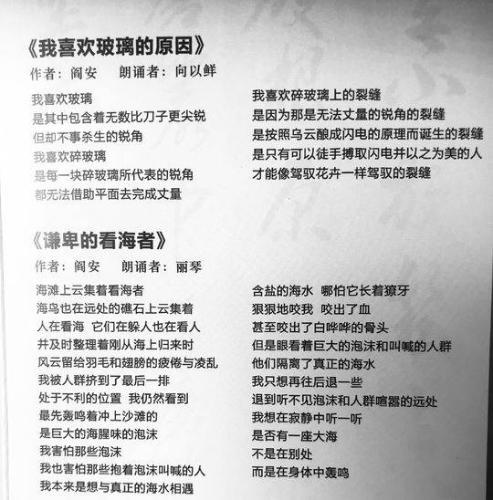 《我喜欢玻璃的原因》
作者：阎安 朗诵者：向以鲜
我喜欢玻璃
是其中包含着无数比刀子更尖锐
但却不事杀生的锐角
我喜欢碎玻璃
是每一块碎玻璃所代表的锐角
都无法借助平面去完成丈量
我喜欢碎玻璃上的裂缝
是因为那是无法丈量的锐角的裂缝
是按照乌云酿成闪电的原理而诞生的裂缝
是只有可以徒手搏取闪电并以之为美的人
才能像驾驭花卉一样驾驭的裂缝
《谦卑的看海者》
作者：阎安 朗诵者：丽琴
海滩上云集着看海者
海鸟也在远处的礁石上云集着
人在看海 它们在躲人也在看人
并及时整理着刚从海上归来时
风云留给羽毛和翅膀的疲倦与凌乱
我被人群挤到了最后一排
处于不利的位置 我仍然看到
最先轰鸣着冲上沙滩的
是巨大的海腥味的泡沫
我害怕那些泡沫
我也害怕那些抱着泡沫叫喊的人
我本来是想与真正的海水相遇
含盐的海水 哪怕它长着獠牙
狠狠地咬我 咬出了血
甚至咬出了白哗哗的骨头
但是眼看着巨大的泡沫和叫喊的人群
他们隔离了真正的海水
我只想再往后退一些
退到听不见泡沫和人群喧嚣的远处
我想在寂静中听一听
是否有一座大海
不是在别处
而是在身体中轰鸣